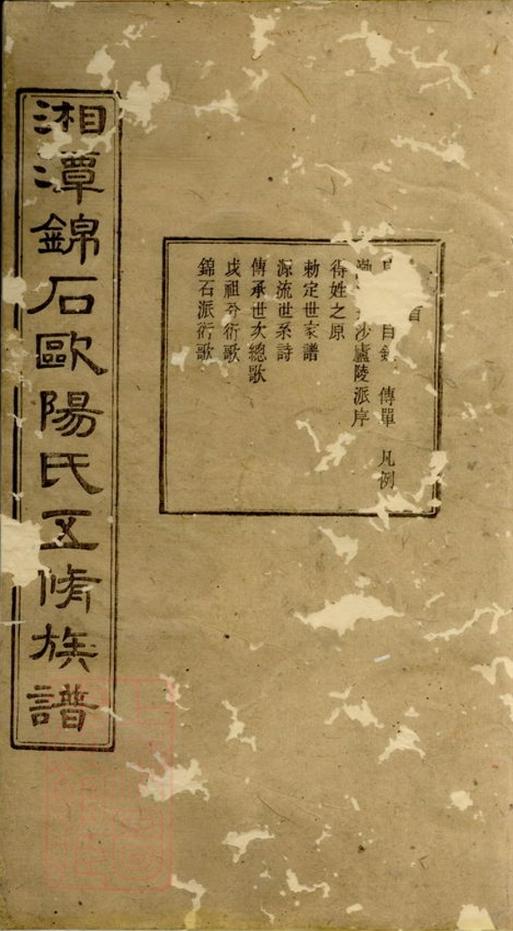 湘潭錦石歐陽氏五脩族譜
首
目錄 傳單 凡例
沙廬陵派序
得姓之原
勅定世家譜
源流世系詩
傳承世次總歌
戊祖分衍歌
錦石派衍歌